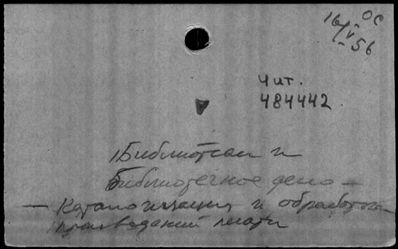 16/V-56 ОС
Чит.
484442
Библиотеки и
библиотечное дело -
- Каталогизация и обработка
произведений печати